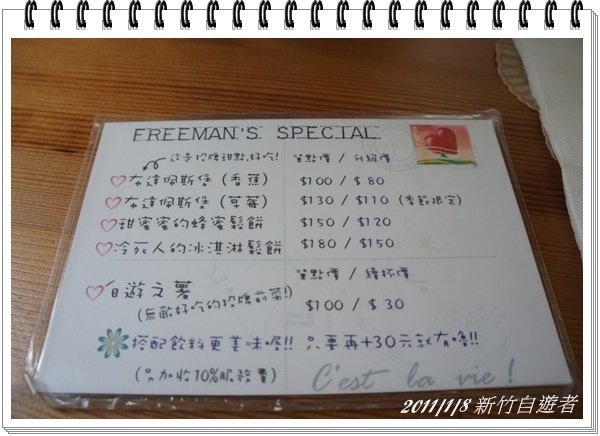 FREEMAN'S SPECIAL
這是招牌甜點,好吃! 單點價 / 升級價
布達佩斯堡 (香蕉) $100 / $80
布達佩斯堡 (草莓) $130 / $110 (季節限定)
甜蜜蜜的蜂蜜鬆餅 $150 / $120
冷死人的冰淇淋鬆餅 $180 / $150
單點價 / 續杯價
自遊之薯 $100 / $30
(無敵好吃的招牌前菜!)
搭配飲料更美味喔!! 只要再+30元就有嚕!!
(另加收10%服務費)
C'est la vie !
2011/1/8 新竹自遊者